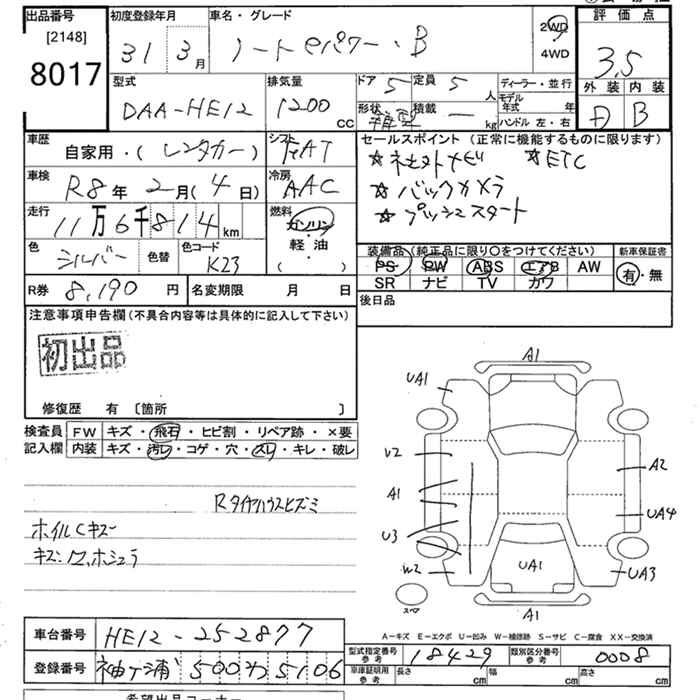 出品番号
[2148]
8017
初度登録年月
31 3月
車名・グレード
ノート eパワー・B
2WD
4WD
評価点
3.5
外装 内装
D B
型式
DAA-HE12
排気量
1200 CC
ドア 5
定員 5 人
形状
積載 ー kg
ディーラー・並行
モデル年式 年
ハンドル 左・右
車歴
自家用・(レンタカー)
シフト
FAT
車検
R8年 2月(4日)
冷房
AAC
走行
11万6千814km
燃料
ガソリン
軽油
(・)
色
シルバー
色替
色コード
K23
R券 8,190 円
名変期限 月 日
セールスポイント (正常に機能するものに限ります)
☆純正ナビ ☆ETC
☆バックカメラ
☆プッシュスタート
装備品 (純正品に限り〇をつけてください)
PS PW ABS エアB AW
SR ナビ TV カワ
新車保証書
有・無
後日品
注意事項申告欄(不具合内容等は具体的に記入して下さい)
初出品
修復歴 有 〔箇所 〕
検査員記入欄
FW キズ・飛石・ヒビ割・リペア跡・×要
内装 キズ・汚レ・コゲ・穴・スレ・キレ・破レ
Rタイヤハウスヒズミ
ホイルCキズ
A1
UA1
U2
A1
U3
W2
A2
UA4
UA3
UA1
A1
スペア
A-キズ E-エクボ U-凹み W-補修跡 S-サビ C-腐食 XX-交換済
車台番号 HE12-252877
登録番号 袖ヶ浦 500 わ 5106
型式指定番号 参考 18429
類別区分番号 参考 0008
車庫証明用 参考 長さ cm 幅 cm 高さ cm
希望出品コーナー